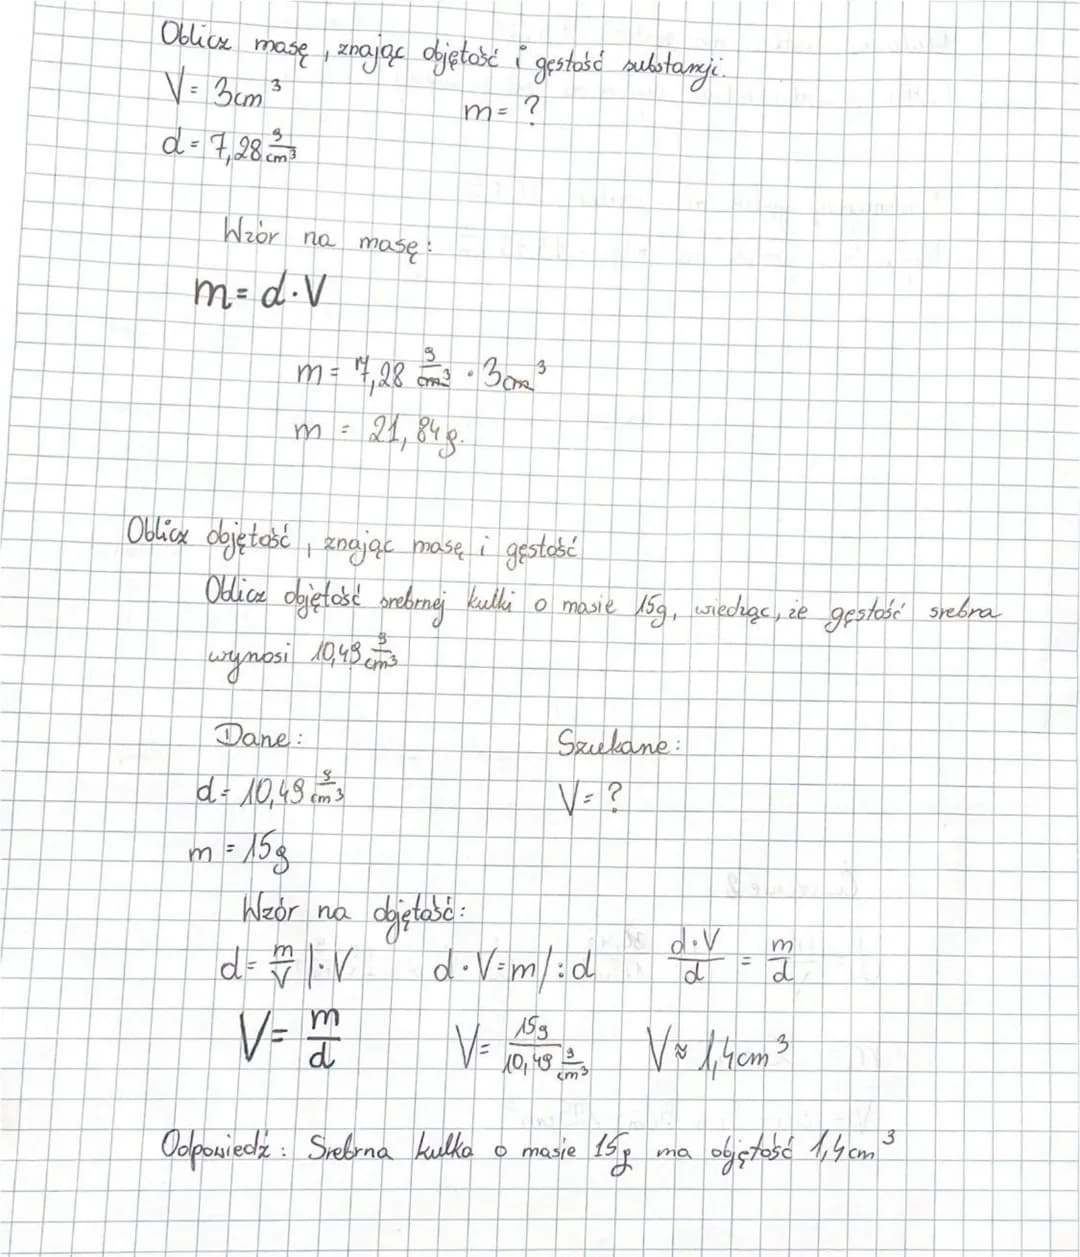 Oblicz masę, znając objętość i gęstość substancji.
V = 3cm³
m = ?
d = 7,28 g/cm³
Wzór na masę:
m = d · V
m = 7,28 g/cm³ · 3cm³
m = 21,84g.
Oblicz objętość, znając masę i gęstość
Oblicz objętość srebrnej kulki o masie 15g, wiedząc, że gęstość srebra
wynosi 10,49 g/cm³
Dane: Szukane:
d = 10,49 g/cm³ V = ?
m = 15g
Wzór na objętość:
d = m/V |· V d · V = m /: d d · V/d = m/d
V = m/d V = 15g/10,49 g/cm³ V ≈ 1,4cm³
Odpowiedź: Srebrna kulka o masie 15g ma objętość 1,4cm³